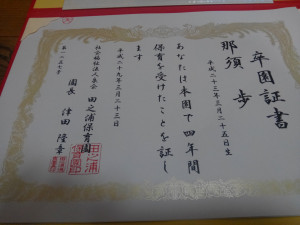 卒園証書
那須 歩
平成二十三年三月二十五日生
あなたは本園で四年間
保育を受けたことを証し
ます
平成二十九年三月二十三日
田之浦保育園
園長 津田 隆幸